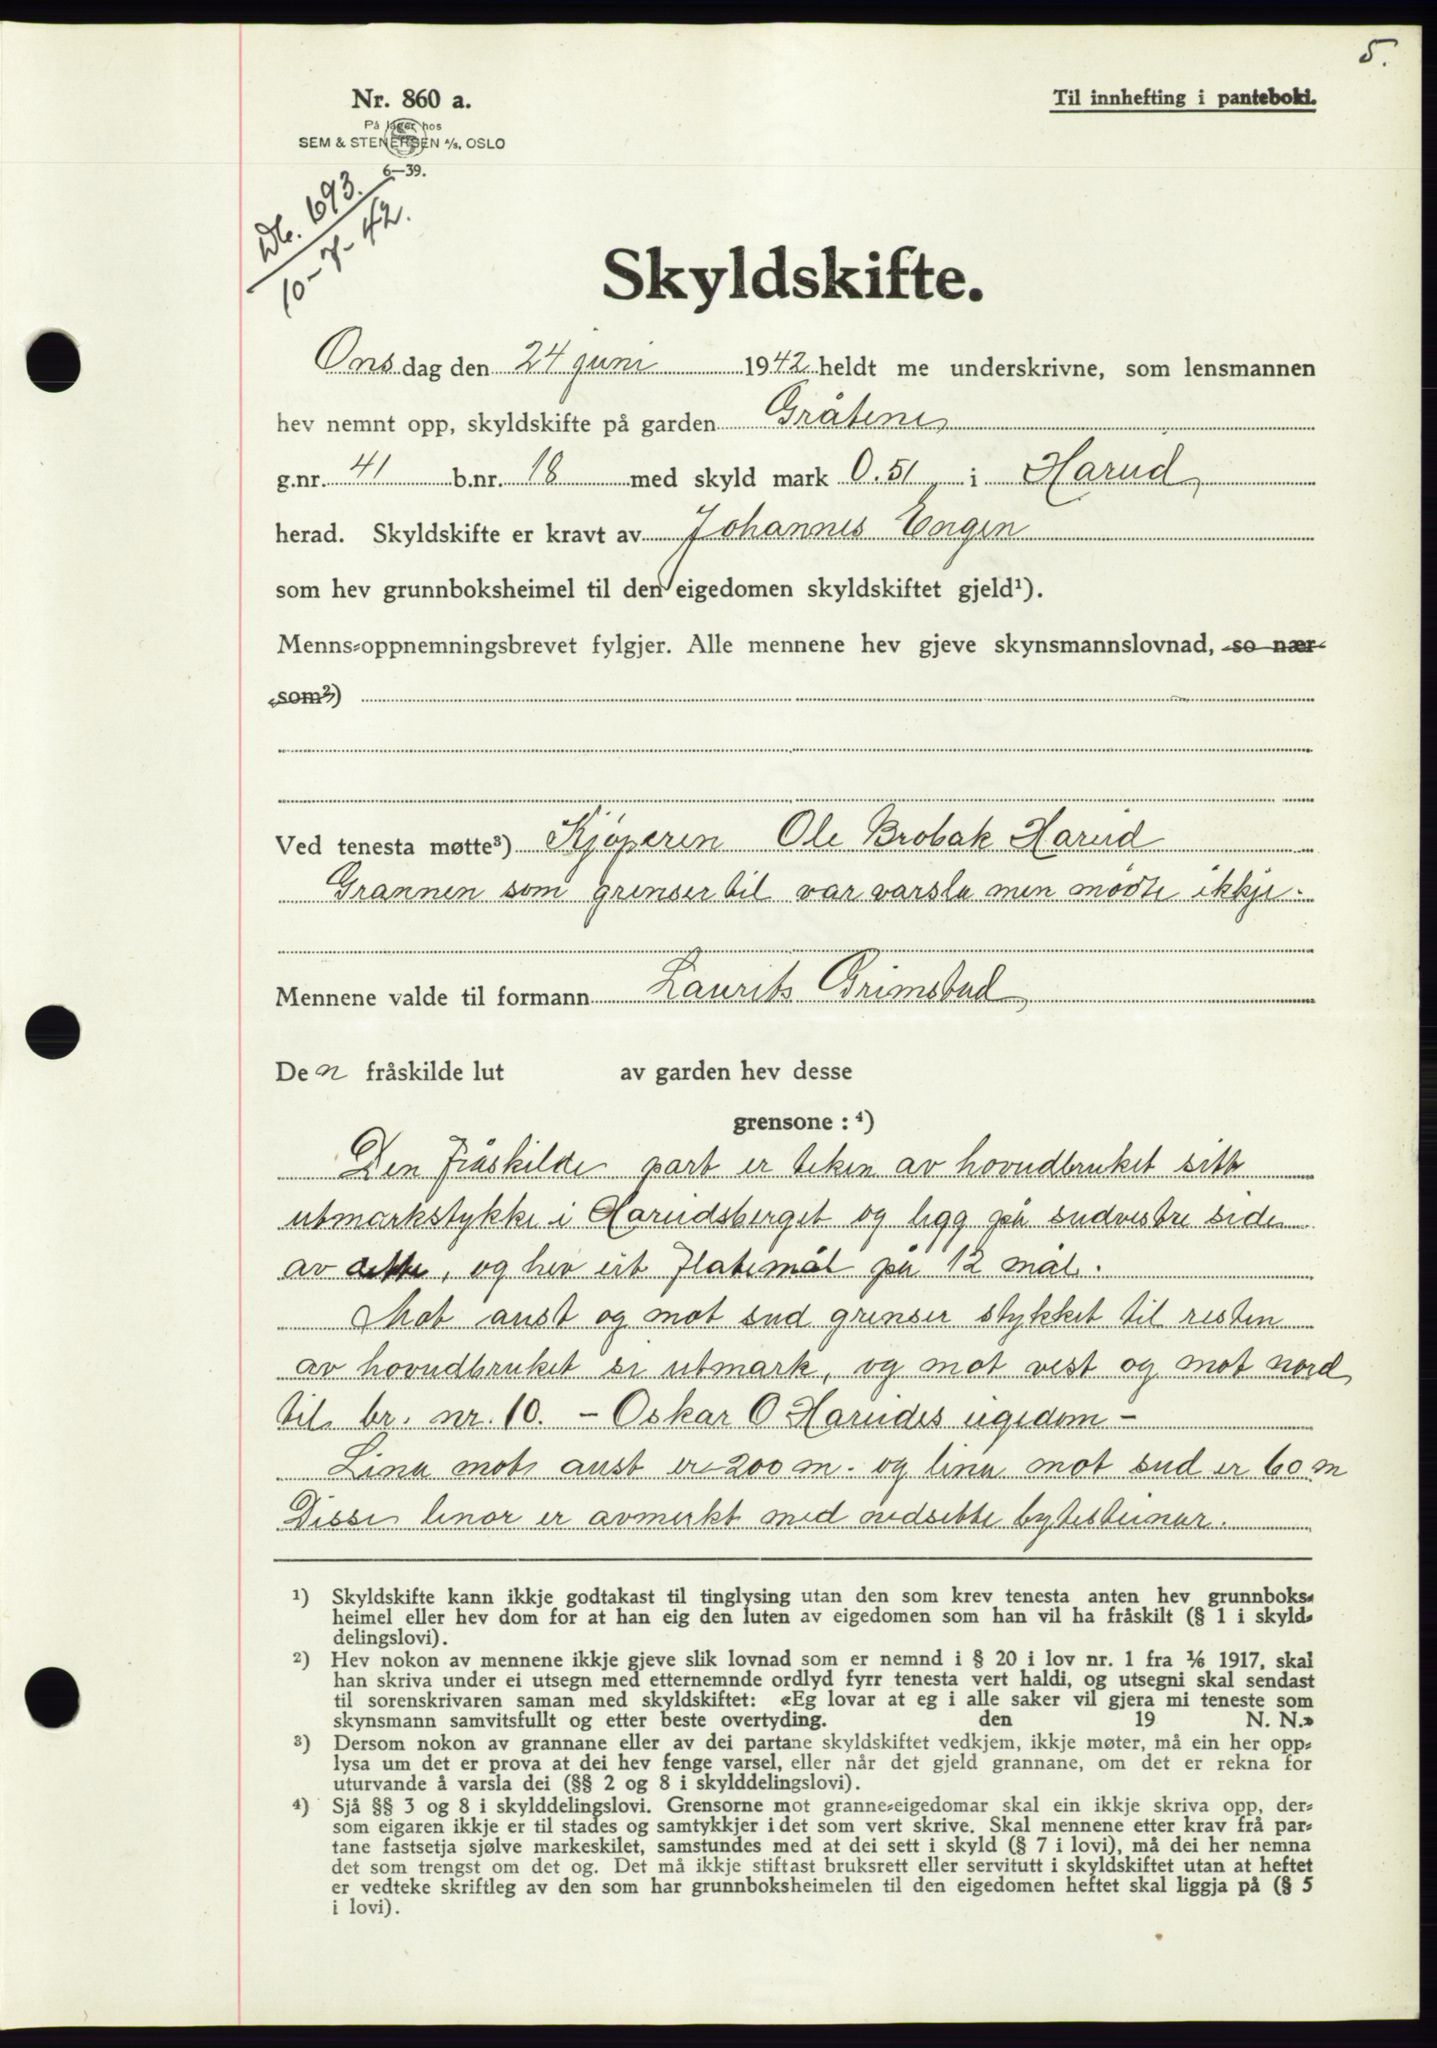 5.
Nr. 860 a.
Til innhefting i panteboki.
På lager hos
SEM & STENERSEN A/S, OSLO
6—39.
Db. 693.
10-7-42.
Skyldskifte.
Onsdag den 24 juni 1942 heldt me underskrivne, som lensmannen
hev nemnt opp, skyldskifte på garden Gråtenes
g.nr. 41 b.nr. 18 med skyld mark 0.51 i Hareid
herad. Skyldskifte er kravt av Johannes Engen
som hev grunnboksheimel til den eigedomen skyldskiftet gjeld¹).
Menns-oppnemningsbrevet fylgjer. Alle mennene hev gjeve skynsmannslovnad, so nær
som²)
Ved tenesta møtte³) Kjøperen Ole Brobak Hareid
Grannen som grenser til var varsla men mødte ikkje.
Mennene valde til formann Laurits Grimstad
Den fråskilde lut av garden hev desse
grensone : ⁴)
Den fråskilde part er teken av hovudbruket sitt
utmarkstykke i Hareidsberget og ligg på sudvestre side
av dette, og hev eit flatemål på 12 mål.
Mot aust og mot sud grenser stykket til resten
av hovudbruket si utmark, og mot vest og mot nord
til br. nr. 10. - Oskar O Hareides eigedom -
Lina mot aust er 200 m. og lina mot sud er 60 m
Disse linor er avmerkt med nedsette bytesteinar.
¹) Skyldskifte kann ikkje godtakast til tinglysing utan den som krev tenesta anten hev grunnboks-
heimel eller hev dom for at han eig den luten av eigedomen som han vil ha fråskilt (§ 1 i skyld-
delingslovi).
²) Hev nokon av mennene ikkje gjeve slik lovnad som er nemnd i § 20 i lov nr. 1 fra 1/6 1917, skal
han skriva under ei utsegn med etternemnde ordlyd fyrr tenesta vert haldi, og utsegni skal sendast
til sorenskrivaren saman med skyldskiftet: «Eg lovar at eg i alle saker vil gjera mi teneste som
skynsmann samvitsfullt og etter beste overtyding. den 19 N. N.»
³) Dersom nokon av grannane eller av dei partane skyldskiftet vedkjem, ikkje møter, må ein her opp-
lysa um det er prova at dei hev fenge varsel, eller når det gjeld grannane, om det er rekna for
uturvande å varsla dei (§§ 2 og 8 i skylddelingslovi).
⁴) Sjå §§ 3 og 8 i skylddelingslovi. Grensorne mot granne-eigedomar skal ein ikkje skriva opp, der-
som eigaren ikkje er til stades og samtykkjer i det som vert skrive. Skal mennene etter krav frå par-
tane fastsetja sjølve markeskilet, samstundes med at dei sett i skyld (§ 7 i lovi), må dei her nemna
det som trengst om det og. Det må ikkje stiftast bruksrett eller servitutt i skyldskiftet utan at heftet
er vedteke skriftleg av den som har grunnboksheimelen til den eigedomen heftet skal liggja på (§ 5
i lovi).